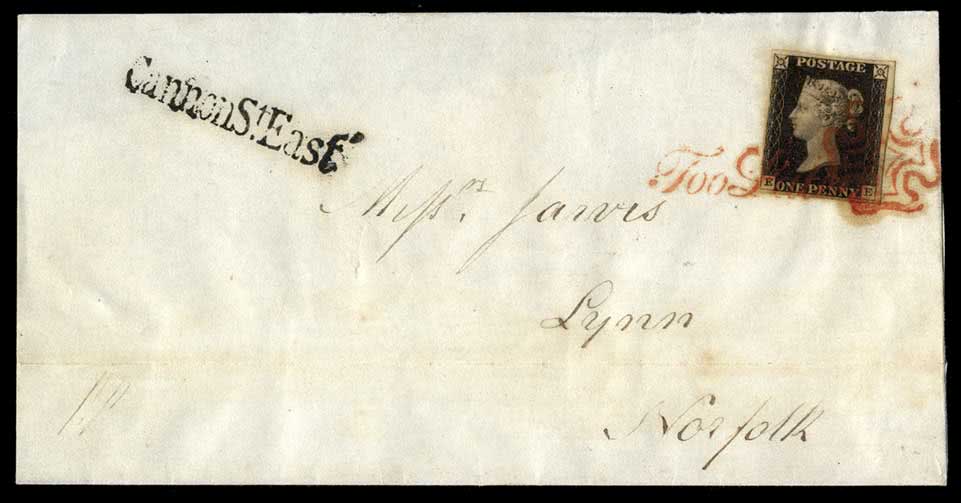 Cannon St. East
POSTAGE
Too
E ONE PENNY E
Messrs. Jarvis
Lynn
Norfolk